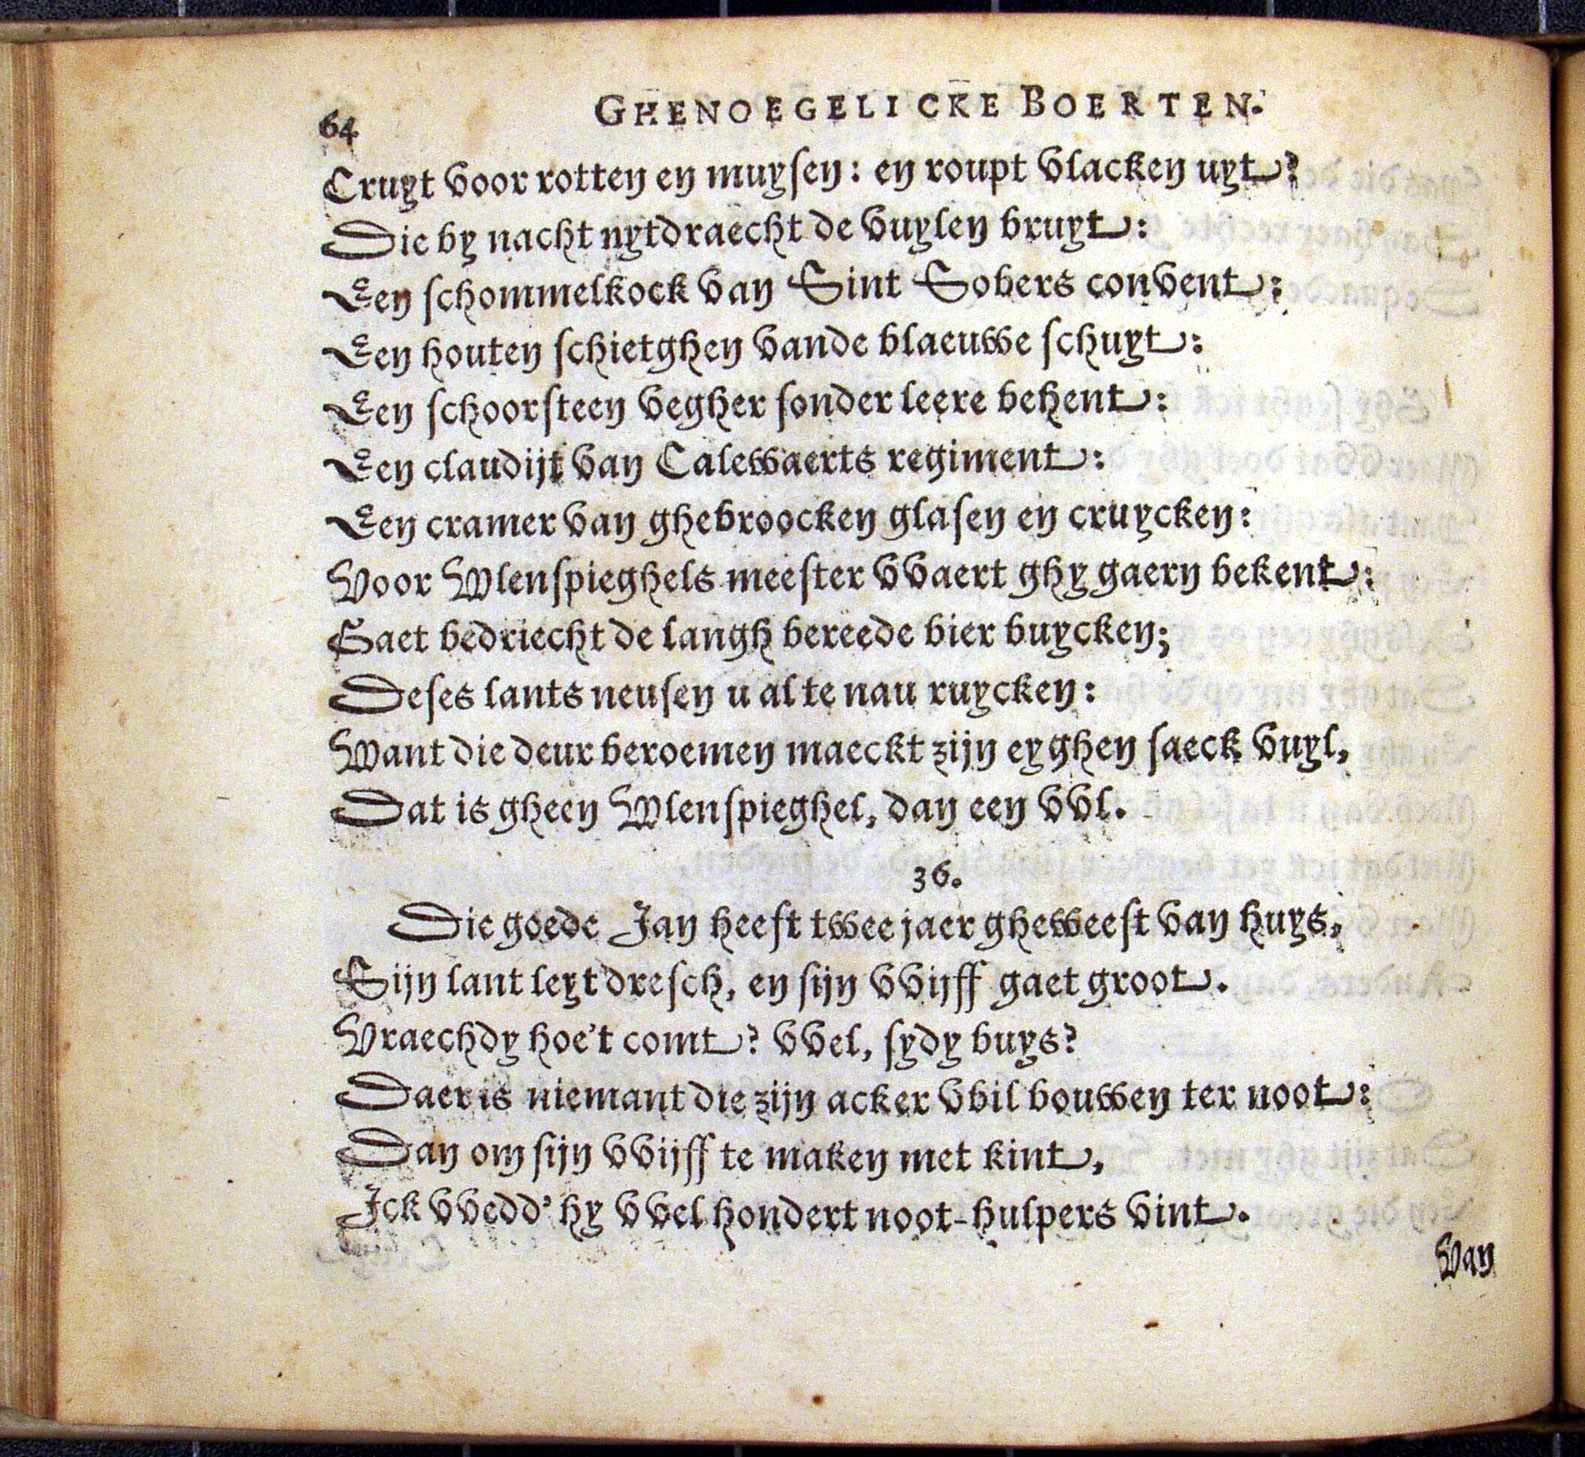 64 GHENOEGELICKE BOERTEN.
Cruyt voor rotten en muysen: en roupt vlacken uyt?
Die by nacht uytdraecht de vuylen bruyt:
Een schommelkock van Sint Sobers convent:
Een houten schietghen vande blaeuwe schuyt:
Een schoorsteen vegher sonder leere behent:
Een claudijt van Calewaerts regiment:
Een cramer van ghebroocken glasen en cruycken:
Voor Wlenspieghels meester vvaert ghy gaern bekent:
Gaet bedriecht de langh bereede bier buycken;
Deses lants neusen u al te nau ruycken:
Want die deur beroemen maeckt zijn eyghen saeck vuyl,
Dat is gheen Wlenspieghel, dan een vvl.
36.
Die goede Jan heeft twee jaer gheweest van huys,
Sijn lant leyt dresch, en sijn vvijff gaet groot.
Vraechdy hoe't comt? vvel, sydy buys?
Daer is niemant die zijn acker vvil bouwen ter noot:
Dan om sijn vvijff te maken met kint,
Ick vvedd' hy vvel hondert noot-hulpers vint.
Van